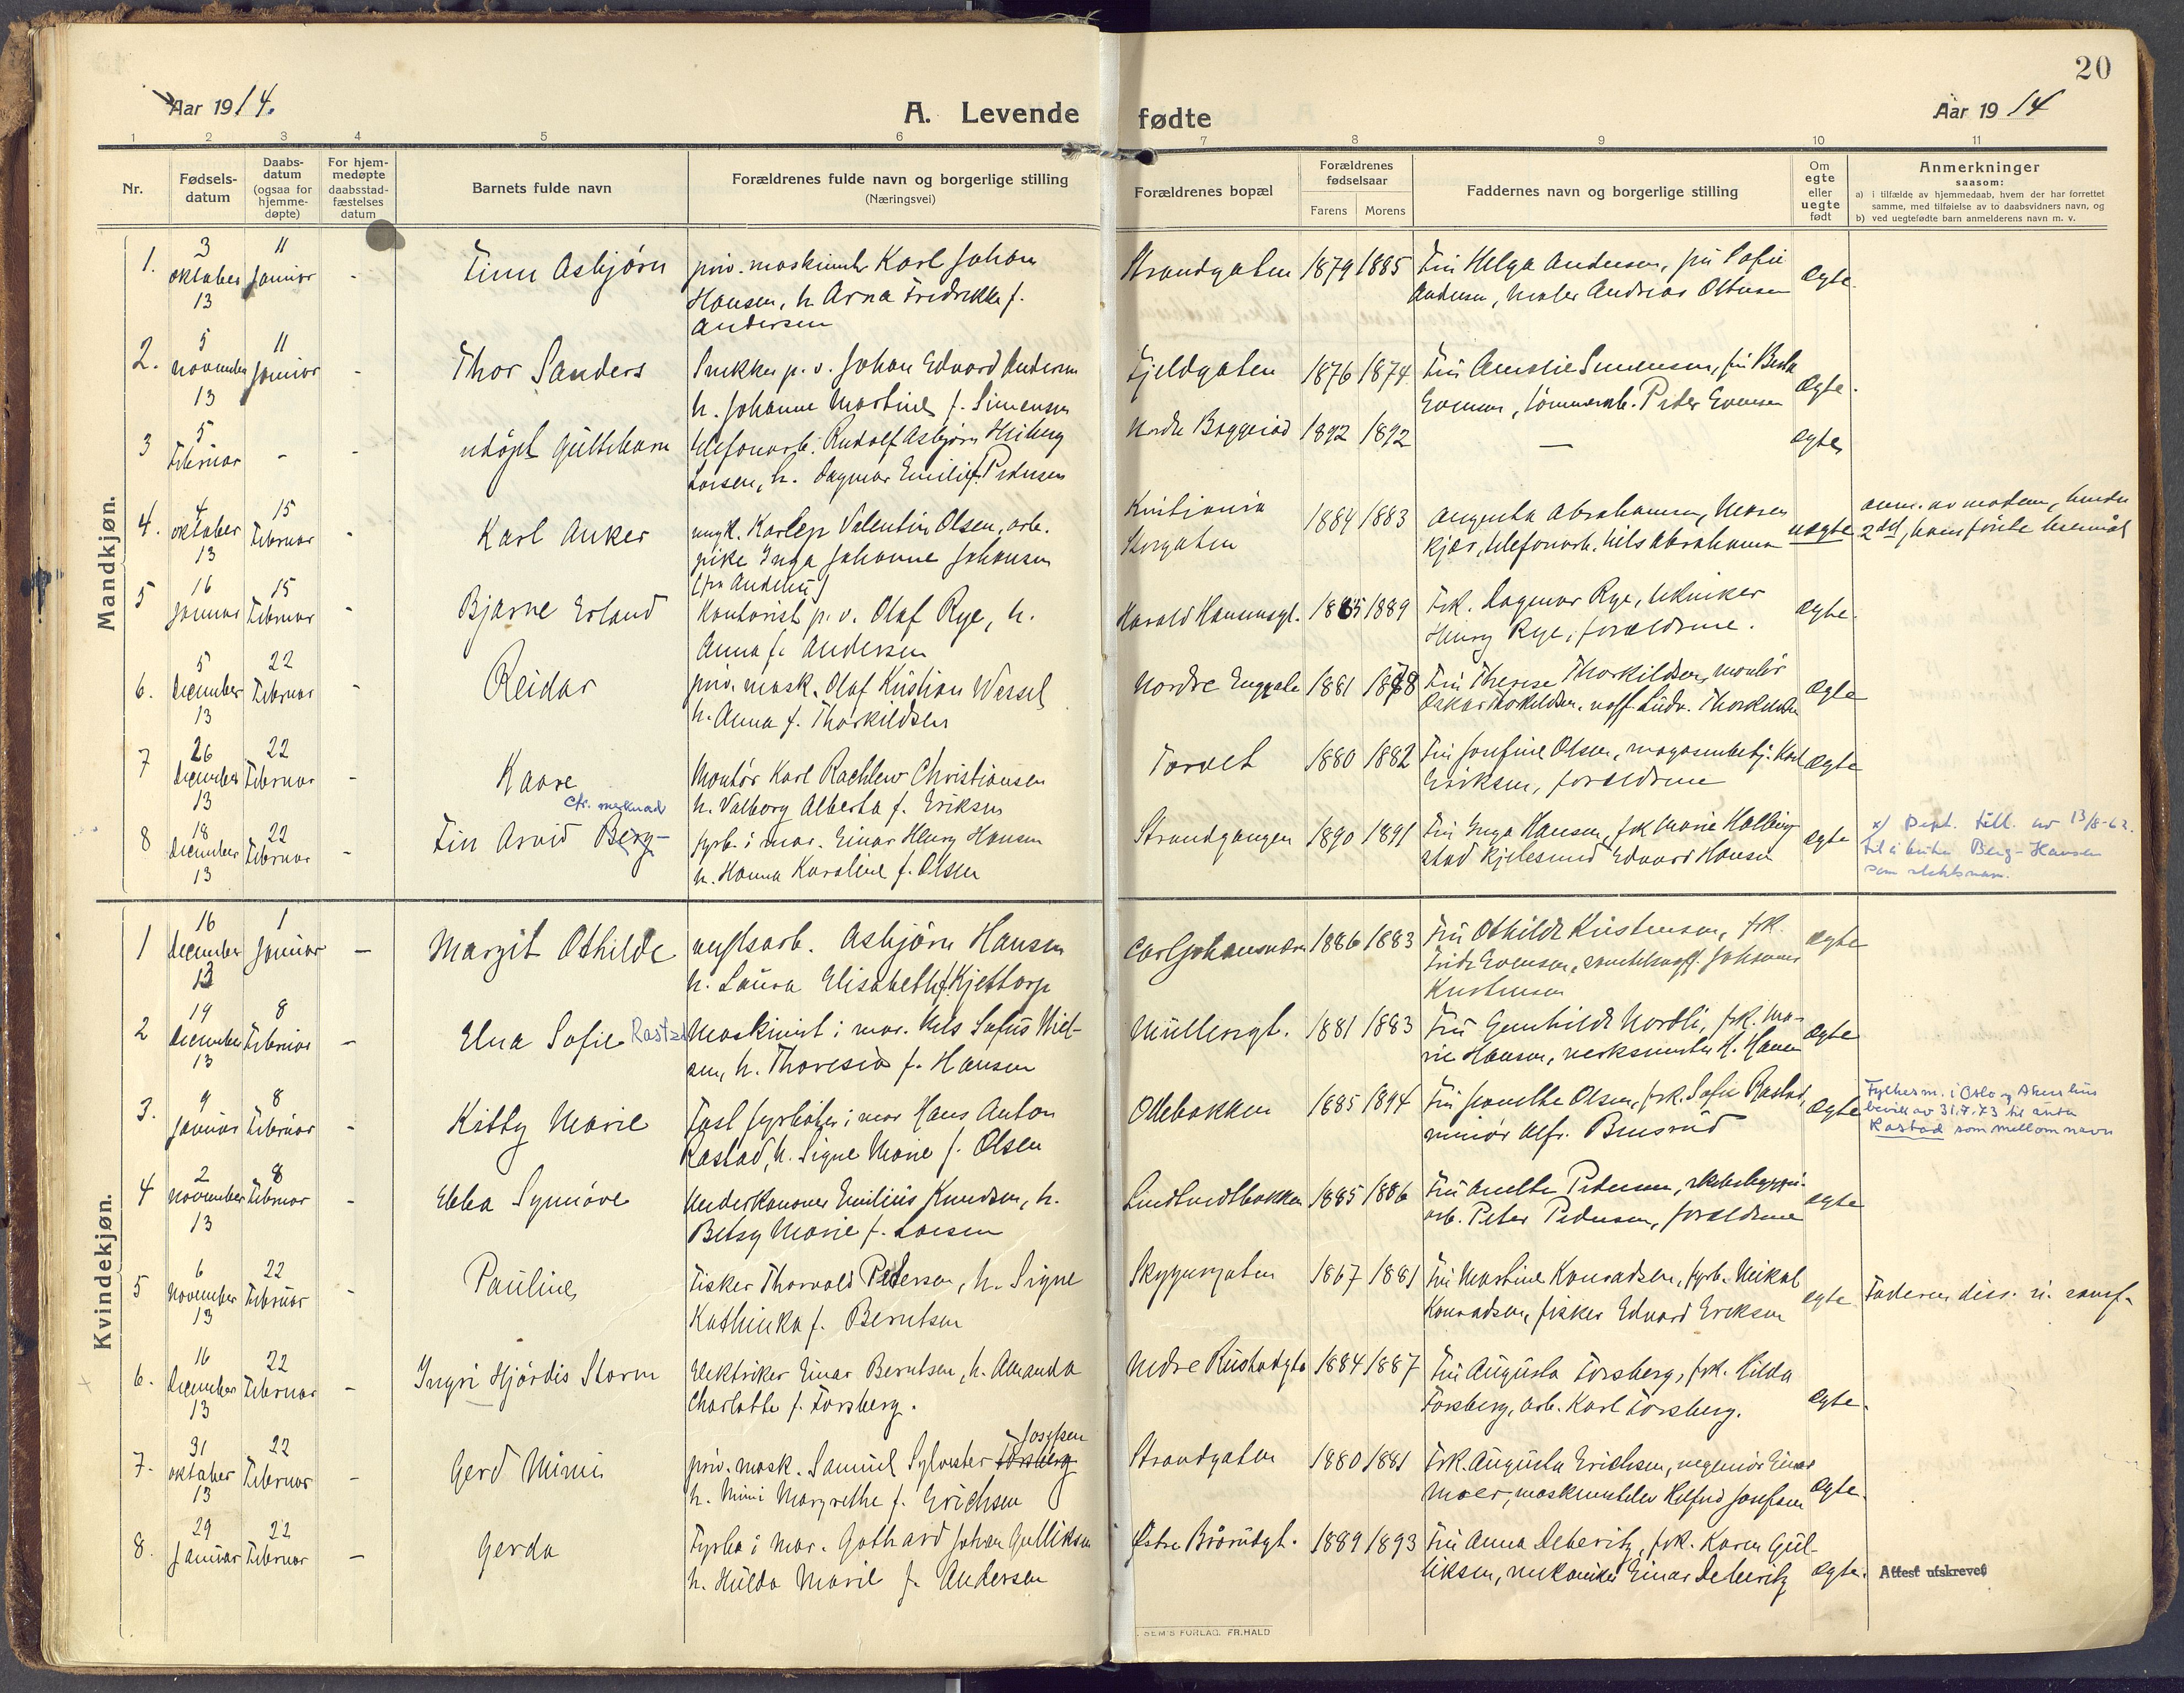 20
Aar 1914.
A. Levende fødte
Aar 1914
1 2 3 4 5 6 7 8 9 10 11
Nr.
Fødsels-
datum
Daabs-
datum
(ogsaa for
hjemme-
døpte)
For hjem-
medøpte
daabsstad-
fæstelses
datum
Barnets fulde navn
Forældrenes fulde navn og borgerlige stilling
(Næringsvei)
Forældrenes bopæl
Forældrenes
fødselsaar
Farens Morens
Faddernes navn og borgerlige stilling
Om
egte
eller
uegte
født
Anmerkninger
saasom:
a) i tilfælde av hjemmedaab, hvem der har forrettet
samme, med tilføielse av to daabsvidners navn, og
b) ved uegtefødte barn anmelderens navn m. v.
Mandkjøn.
1. 3 oktober 13 11 Januar - Finn Asbjørn
priv. maskinist Karl Johan
Hansen, h. Arna Fredrikke f.
Andersen
Strandgaten 1879 1885
Fru Helga Andersen, fru Sofie
Andersen, maler Andreas
ægte.
2. 5 november 13 11 Januar - Thor Sanders
Snekker p. v. Johan Edvard Andersen
h. Johanne Martine f. Simensen
Fjeldgaten 1876 1874
Fru Amalie Simensen, fru
Evensen, tømmerarb. Peder Evensen
ægte.
3 5 Februar - - udøpt guttebarn
telefonarb. Rudolf Asbjørn Heiberg
Larsen, h. Dagmar Emilie f. Pedersen
Nordre Baggerød 1892 1892
—
ægte
4. 4 oktober 13 15 Februar - Karl Anker
ungk. Karlep Valentin Olsen, arb.
pike Inga Johanne Johansen
Kristiania
Storgaten
1884 1883
Augusta Abrahamsen, Maren
Kjær, telefonarb. Nils Abrahamsen
uægte
anm. av moderen, hendes
2det, hans første leiermål
5 16 Januar 15 Februar - Bjarne Erland
Kontorist p. v. Olaf Rye, h.
Anna f. Andersen
Harald Haarussgt. 1885 1889
Frk. Dagmar Rye, tekniker
Henry Rye, forældrene.
ægte.
6. 5 December 13 22 Februar - Reidar
priv. mask. Olaf Kristian Wessel
h. Anna f. Thorkildsen
Nordre Enggate 1881 1878
Fru Therese Thorkildsen, montør
Oskar Thorkildsen, Ludv. Thorkildsen
ægte
7 26 December 13 22 Februar - Kaare
Montør Karl Rachlew Christiansen
h. Valborg Alberta f. Eriksen
Torvet 1880 1882
Fru Josefine Olsen, magasinbetj. Karl
Eriksen, forældrene
ægte
cfr. merknad
8 18 December 13 22 Februar - Fin Arvid Berg-
fyrb. i mar. Einar Henry Hansen
h. Hanna Karoline f. Olsen
Strandgangen 1890 1891
Fru Inga Hansen, frk Marie Halling-
stad kjelesmed Edvard Hansen
ægte
x/ Dept. till. av 13/8-62.
til å bruke Berg-Hansen
som slektsnavn.
Kvindekjøn.
1 16 December 13 1 Januar - Margit Othilde
verftsarb. Asbjørn Hansen
h. Laura Elisabeth f. Kjettorp
Carljohansværn 1886 1883
Fru Othilde Kristensen, frk.
Frida Evensen, Johannes
Kristensen
ægte
2 19 December 13 8 Februar - Elna Sofie Rastad
Maskinist i mar. Nils Sofus Niel-
sen, h. Thoresia f. Hansen
Müllersgt. 1881 1883
Fru Gunhilde Nordli, frk. Ma-
rie Hansen, verksmester H. Hansen
ægte
3. 9 Januar 8 Februar - Kitty Marie
Fast fyrbøter i mar Hans Anton
Rastad, h. Signe Marie f. Olsen
Ollebakken 1885 1894
Fru Jeanette Olsen, frk. Sofie Rastad,
minør Alfr. Bruserud
ægte
Fylkesm. i Oslo og Akershus
bevill. av 31.7.73 til anta
Rastad som mellomnavn
4 2 november 13 8 Februar - Ebba Synnøve
Underkanoner Emilius Knudsen, h.
Betsy Marie f. Larsen
Lindtvedtbakken 1885 1886
Fru Anette Pedersen, skibsbyggeri-
arb. Peter Pedersen, forældrene
ægte
5 6 November 13 22 Februar - Pauline
Fisker Thorvald Pedersen, h. Signe
Kathinka f. Berntsen
Skyggengaten 1867 1881
Fru Martine Konradsen, fyrb. Mikal
Konradsen, fisker Edvard Eriksen
ægte
Faderen diss. u. samf.
6. 16 December 13 22 Februar - Ingri Hjørdis Storm
Elektriker Einar Berntsen, h. Amanda
Charlotte f. Forsberg.
Nedre Rustadgt. 1884 1887
Fru Augusta Forsberg, frk. Hilda
Forsberg, arb. Karl Forsberg.
ægte.
7. 31 oktober 13 22 Februar - Gerd Mimi
Josefsen
priv. mask. Samuel Sylvester Forsberg
h. Mimi Margrethe f. Erichsen
Strandgaten 1880 1881
Frk. Augusta Erichsen, ingeniør Einar
Moer, maskinelev Josefsen
ægte.
8. 29 Januar 22 Februar - Gerda
Fyrbø i mar. Gothard Johan Gulliksen
h. Hilda Marie f. Andersen
Østre Braarudgt. 1889 1893
Fru Anna Deberitz, frk. Karen Gul-
liksen, mekaniker Einar Deberitz
ægte.
Attest utskrevet
SEM'S FORLAG. FR.HALD